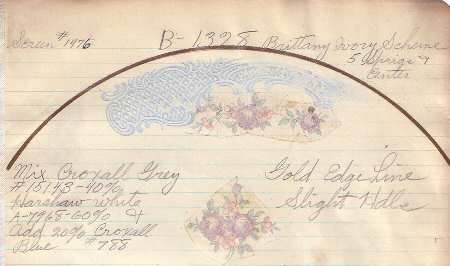 Screen #1976
B-1328 Brittany Ivory Scheme
5 Sprigs &
Center
Mix Croxall Grey
#15143-40%
Harshaw White
A-7968-60% &
Add 20% Croxall
Blue #788
Gold Edge Line
Slight Hdls